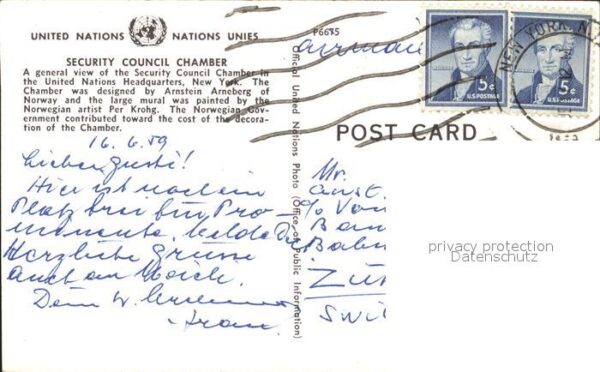 UNITED NATIONS NATIONS UNIES
SECURITY COUNCIL CHAMBER
A general view of the Security Council Chamber in
the United Nations Headquarters, New York. The
Chamber was designed by Arnstein Arneberg of
Norway and the large mural was painted by the
Norwegian artist Per Krohg. The Norwegian Gov-
ernment contributed toward the cost of the decora-
tion of the Chamber.
16.6.59
Lieber Gusti!
Hier ist noch ein
Platz frei für Pro-
minente.
Herzliche Grüsse
auch an
Dein W.
P6675
airmail
Official United Nations Photo (Office of Public Information)
POST CARD
NEW YORK, N.Y.
5¢
U.S. POSTAGE
5¢
U.S. POSTAGE
Mr.
c/o Von
Ban
Bahn
ZÜR
SWI
privacy protection
Datenschutz